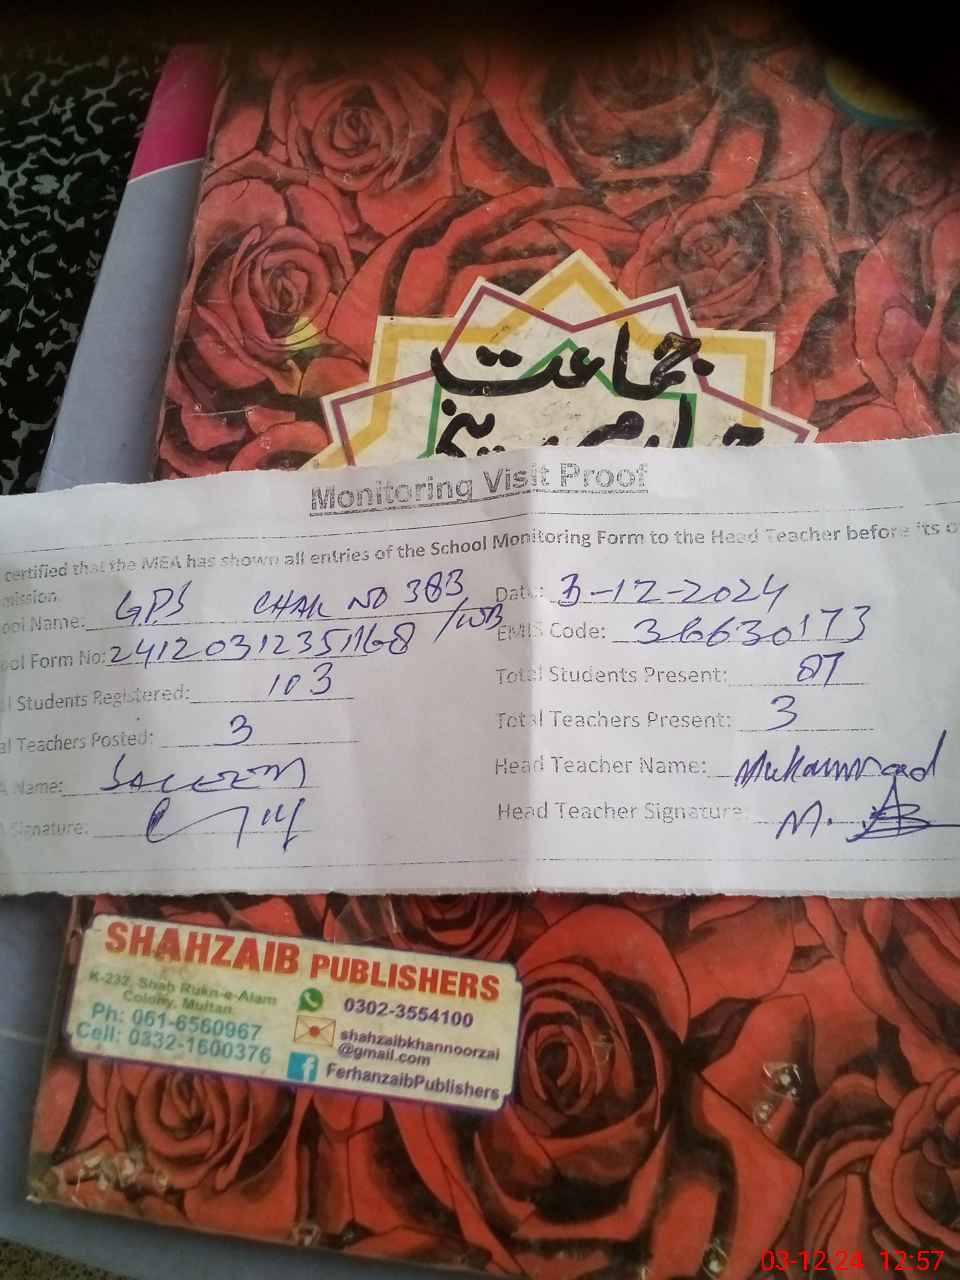 جماعت
Monitoring Visit Proof
certified that the MEA has shown all entries of the School Monitoring Form to the Head Teacher before its
mission.
ool Name: GPS CHAK NO 383 /WB
Date: 3-12-2024
ool Form No: 24120312351168
EMIS Code: 36630173
l Students Registered: 103
Total Students Present: 87
al Teachers Posted: 3
Total Teachers Present: 3
A Name: SALEEM
Head Teacher Name: Muhammad
Signature:
Head Teacher Signature: M.
SHAHZAIB PUBLISHERS
K-232, Shah Rukn-e-Alam
Colony, Multan.
Ph: 061-6560967
Cell: 0332-1600376
0302-3554100
shahzaibkhannoorzai
@gmail.com
FerhanzaibPublishers
03-12-24 12:57